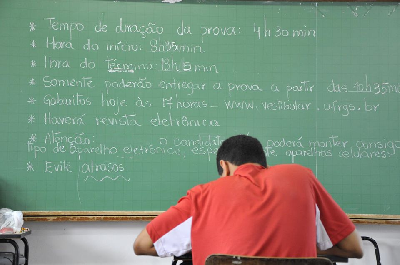 * Tempo de duração da prova: 4h30min
* Hora do início: 8h35min
* Hora do Término: 13h05min
* Somente poderão entregar a prova a partir das
* Gabaritos hoje às 17 horas - www.vestibular.ufrgs.br
* Haverá revista eletrônica
* Atenção: o candidato poderá manter consigo
tipo de aparelho eletrônico, guardem celulares!
* Evite atrasos